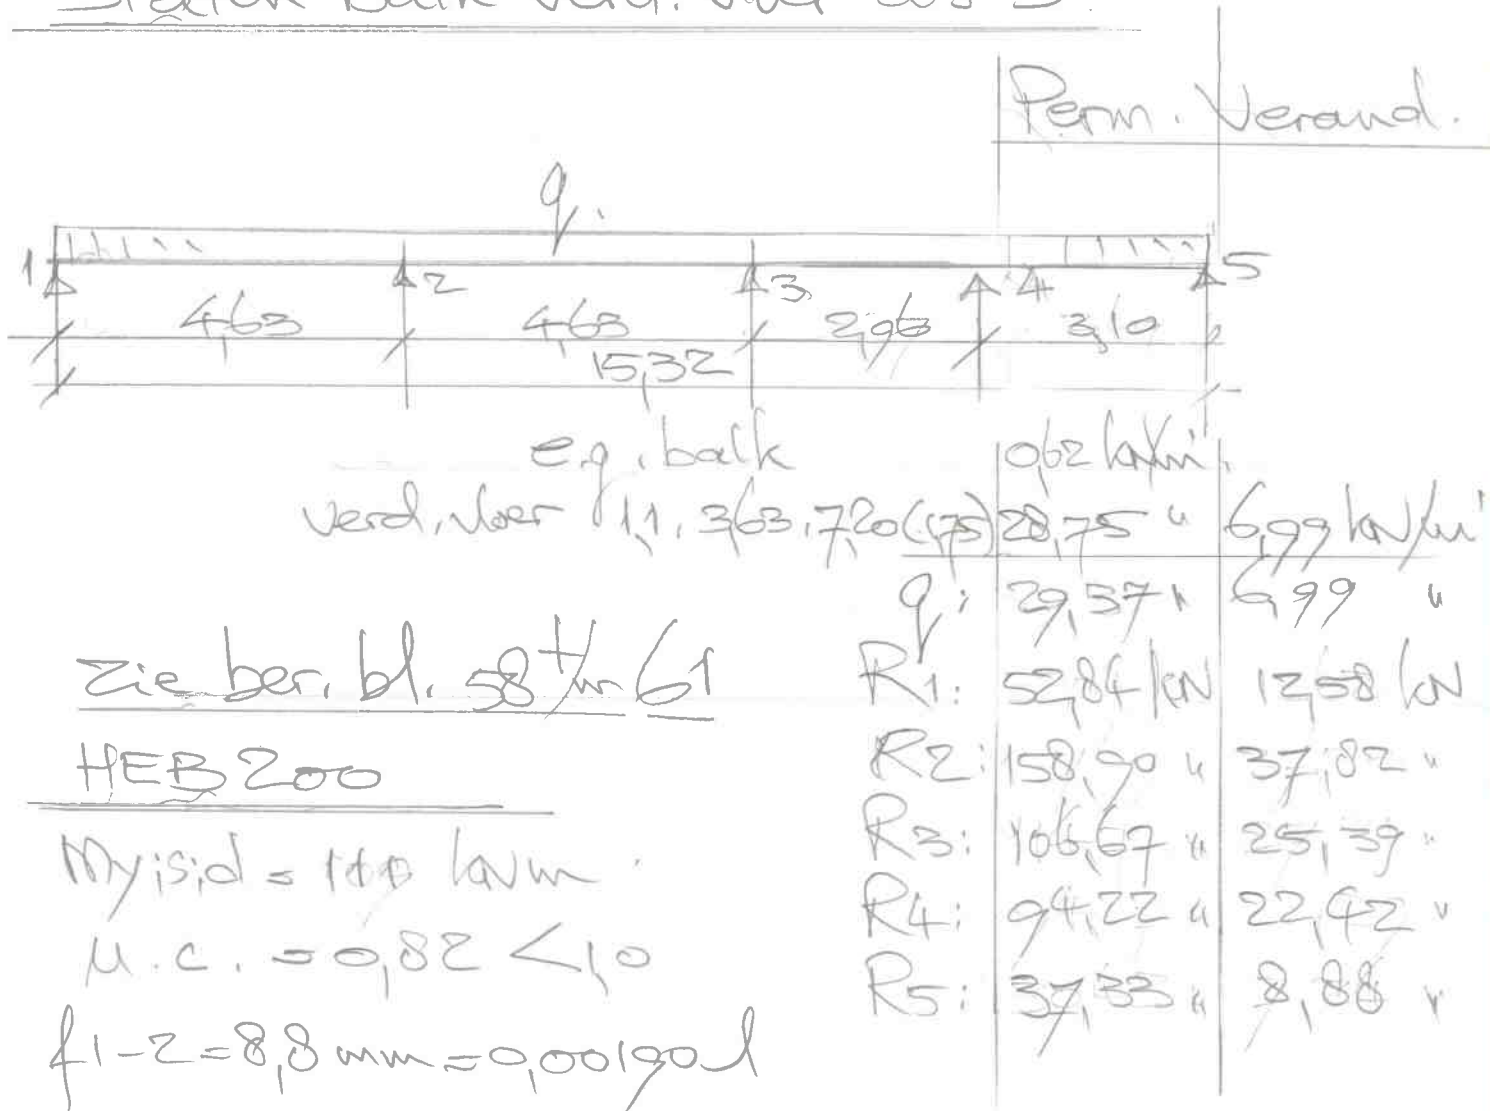 balk verd. vloer as
Perm. Verand.
q.
1 2 3 4 5
4,63 4,63 2,96 3,10
15,32
e.g. balk 0,62 kN/m'
verd. vloer 1,1 . 3,63 . 7,20 (1,75) 28,75 " 6,99 kN/m'
q: 29,37 " 6,99 "
R1: 52,84 kN 12,58 kN
R2: 158,90 " 37,82 "
R3: 106,67 " 25,39 "
R4: 94,22 " 22,42 "
R5: 37,33 " 8,88 "
zie ber. bl. 58 t/m 61
HEB 200
My;s;d = kNm
u.c. = 0,82 < 1,0
f1-2 = 8,8 mm = 0,00190 l